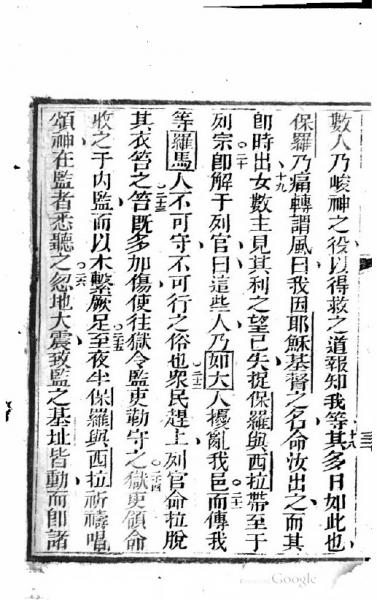 數人乃峻神之役以得救之道報知我等其多日如此也 十八
保羅乃痛轉謂風曰我因耶穌基督之名命汝出之而其 十九
卽時出女數主見其利之望已失捉保羅與西拉帶至于
列宗卽解于列官曰這些人乃如大人擾亂我邑而傳我 二十 二十一
等羅馬人不可守不可行之俗也衆民趕上列官命拉脫 二十二
其衣笞之笞旣多加傷使往獄令監吏勤守之獄吏領命 二十三 二十四
收之于內監而以木繫厥足至夜半保羅與西拉祈禱唱 二十五
頌神在監者悉聽之忽地大震致監之基址皆動而卽諸 二十六
Google